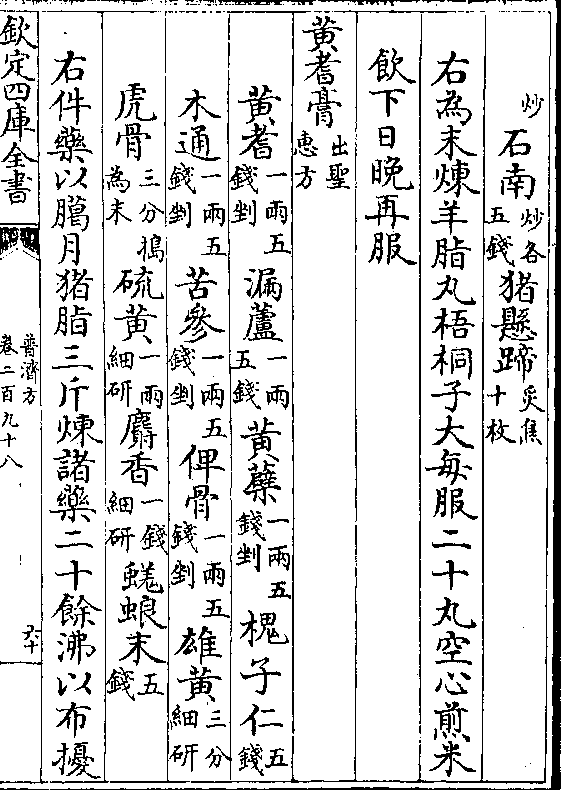 炒石南炒各五錢猪懸蹄炙焦十枚
右為末煉羊脂丸梧桐子大毎服二十丸空心煎米
飲下日晩再服
黄耆膏出聖惠方
黄耆一兩五錢剉漏蘆一兩五錢黄蘗一兩五錢剉槐子仁五錢
木通一兩五錢剉苦參一兩五錢剉俾骨一兩五錢剉雄黄三分細研
虎骨三分搗為末硫黄一兩細研麝香一錢細研蜣蜋末五錢
右件藥以臈月猪脂三斤煉諸藥二十餘沸以布擾
欽定四庫全書
普濟方
卷二百九十八
六十